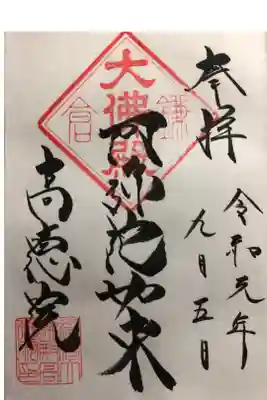 奉拝
令和元年
九月五日
鎌倉
大佛殿
阿弥陀如来
高徳院